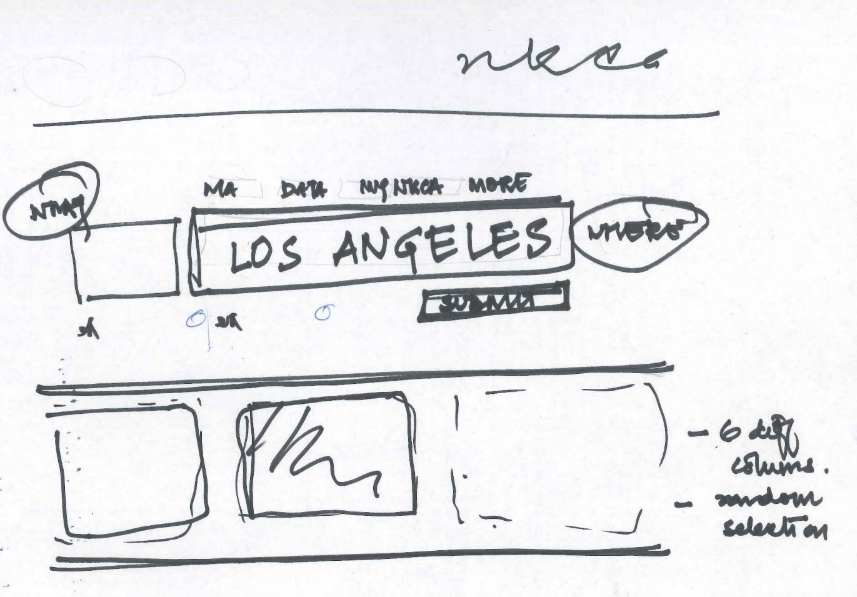 nkca
MA DATA MY NKCA MORE
WHAT
LOS ANGELES
WHERE
SUBMIT
- 6 diff
colums.
- random
selection